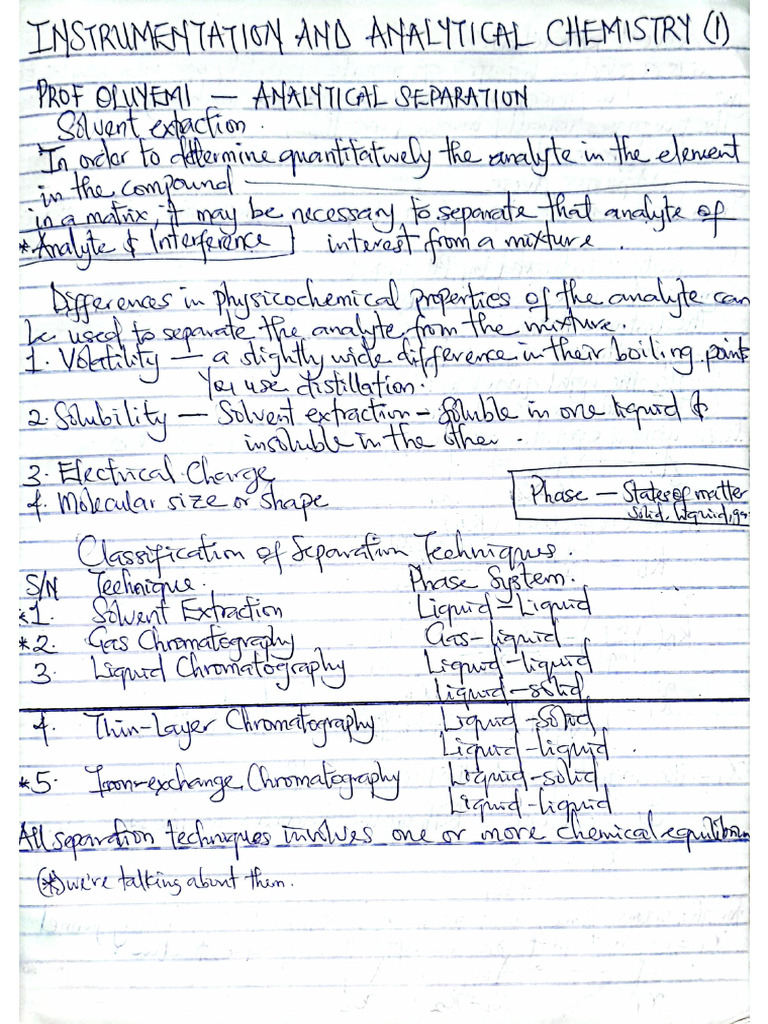 INSTRUMENTATION AND ANALYTICAL CHEMISTRY (1)
PROF OLUYEMI — ANALYTICAL SEPARATION
Solvent extaction.
In order to determine quantitatively the analyte in the element
in the compound
in a matrix, it may be necessary to separate that analyte of
*Analyte & Interference interest from a mixture.
Differences in physicochemical properties of the analyte can
be used to separate the analyte from the mixture.
1. Volatility — a slightly wide difference in their boiling points
You use distillation.
2. Solubility — Solvent extraction - Soluble in one liquid &
insoluble in the other.
3. Electrical Charge
4. Molecular size or shape
Phase — States of matter
Solid, liquid, gas
Classification of Separation Techniques.
S/N Technique. Phase System.
*1. Solvent Extraction Liquid-Liquid
*2. Gas Chromatography Gas-liquid
3. Liquid Chromatography Liquid-liquid
Liquid-solid
4. Thin-Layer Chromatography Liquid-Solid
Liquid-liquid.
*5. Ion-exchange Chromatography Liquid-solid
Liquid-liquid
All separation techniques involves one or more chemical equilibrium
(*) we're talking about them.